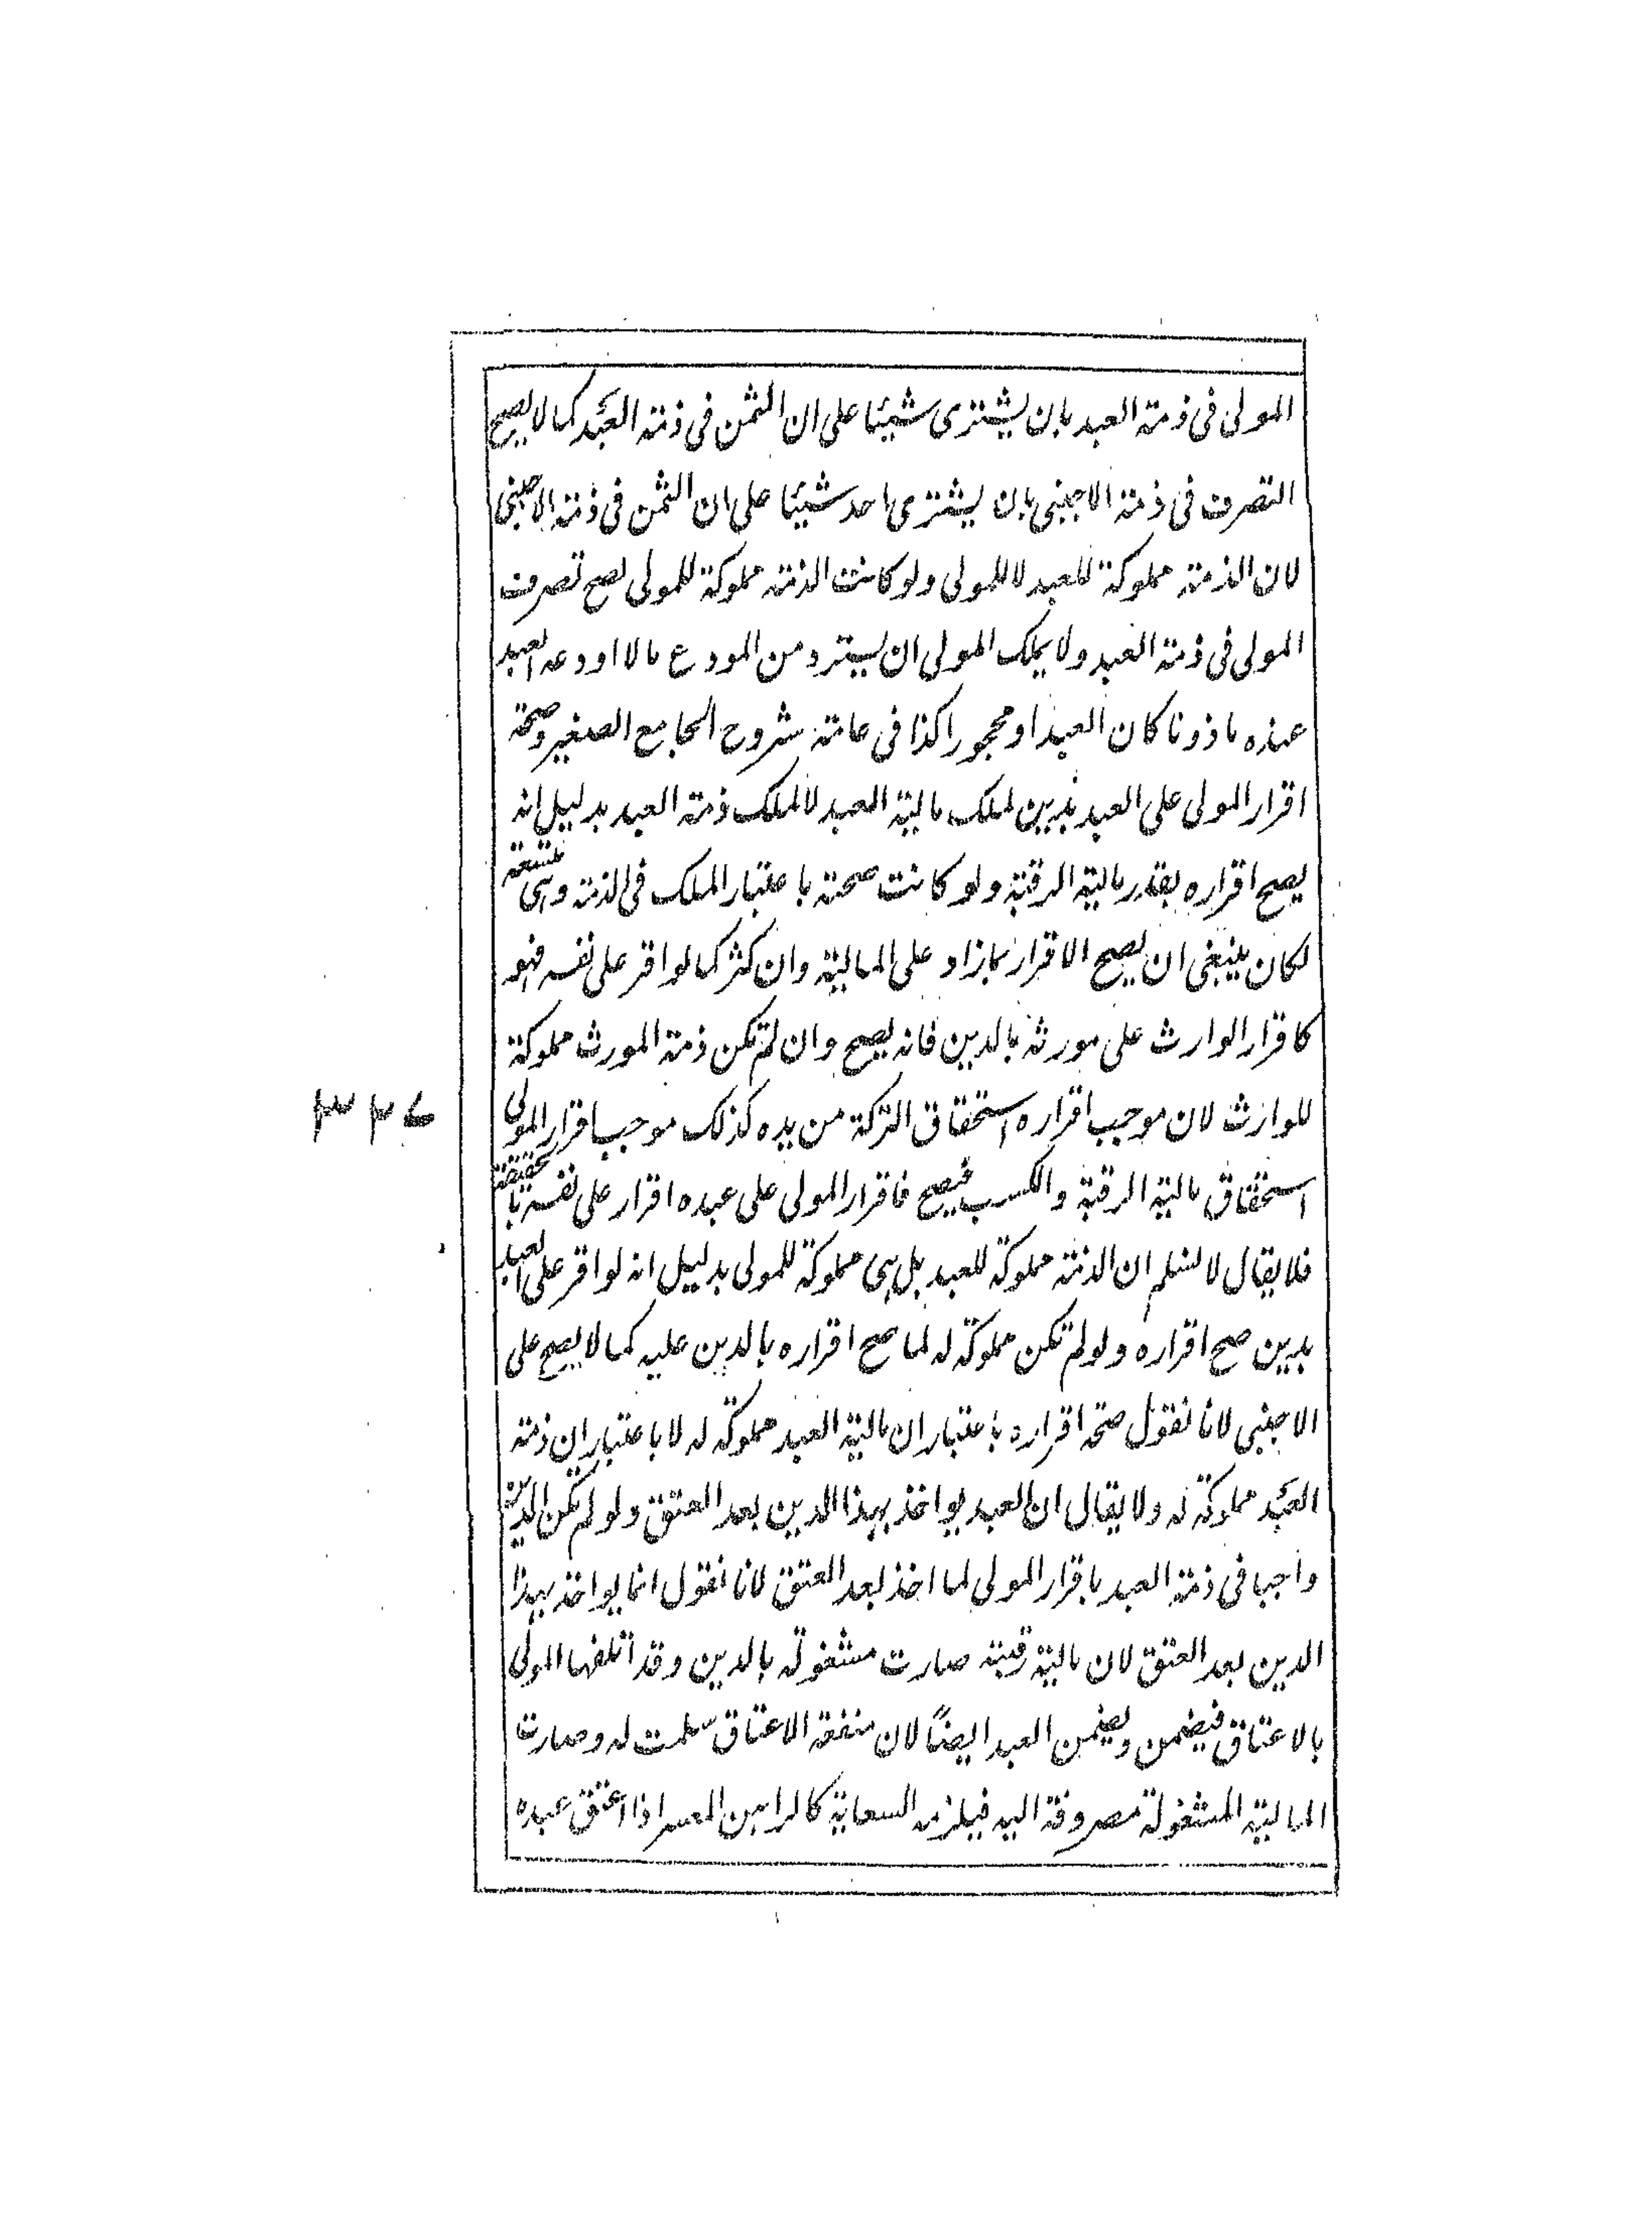 المولى فى ذمة العبد بان يشترى شيئا على ان الثمن فى ذمة العبد كما لا يصح
التصرف فى ذمة الاجنبى بان يشترى احد شيئا على ان الثمن فى ذمة الاجنبى
لان الذمة مملوكة للعبد لا للمولى ولو كانت الذمة مملوكة للمولى لصح تصرف
المولى فى ذمة العبد ولا يملك المولى ان يسترد من المودع مالا اودعه العبد
عنده ماذونا كان العبد او محجورا كذا فى عامة شروح الجامع الصغير وصحة
اقرار المولى على العبد بدين لملك مالية العبد لا لملك ذمة العبد بدليل انه
يصح اقراره بقدر مالية الرقبة ولو كانت صحته باعتبار الملك فى الذمة وهى متسعة
لكان ينبغى ان يصح الاقرار بما زاد على المالية وان كثر كما لو اقر على نفسه فهو
كاقرار الوارث على مورثه بالدين فانه يصح وان لم تكن ذمة المورث مملوكة
للوارث لان موجب اقراره استحقاق التركة من يده كذلك موجب اقرار المولى
استحقاق مالية الرقبة والكسب فيصح فاقرار المولى على عبده اقرار على نفسه بالحقيقة
فلا يقال لا نسلم ان الذمة مملوكة للعبد بل هى مملوكة للمولى بدليل انه لو اقر على العبد
بدين صح اقراره ولو لم تكن مملوكة له لما صح اقراره بالدين عليه كما لا يصح على
الاجنبى لانا نقول صحة اقراره باعتبار ان مالية العبد مملوكة له لا باعتبار ان ذمة
العبد مملوكة له ولا يقال ان العبد يواخذ بهذا الدين بعد العتق ولو لم يكن الدين
واجبا فى ذمة العبد باقرار المولى لما اخذ بعد العتق لانا نقول انما يواخذ بهذا
الدين بعد العتق لان مالية رقبته صارت مشغولة بالدين وقد اتلفها المولى
بالاعتاق فيضمن ويضمن العبد ايضًا لان منفعة الاعتاق سلمت له وصارت
المالية المشغولة مصروفة اليه فيلزمه السعاية كالراهن المعسر اذا اعتق عبده